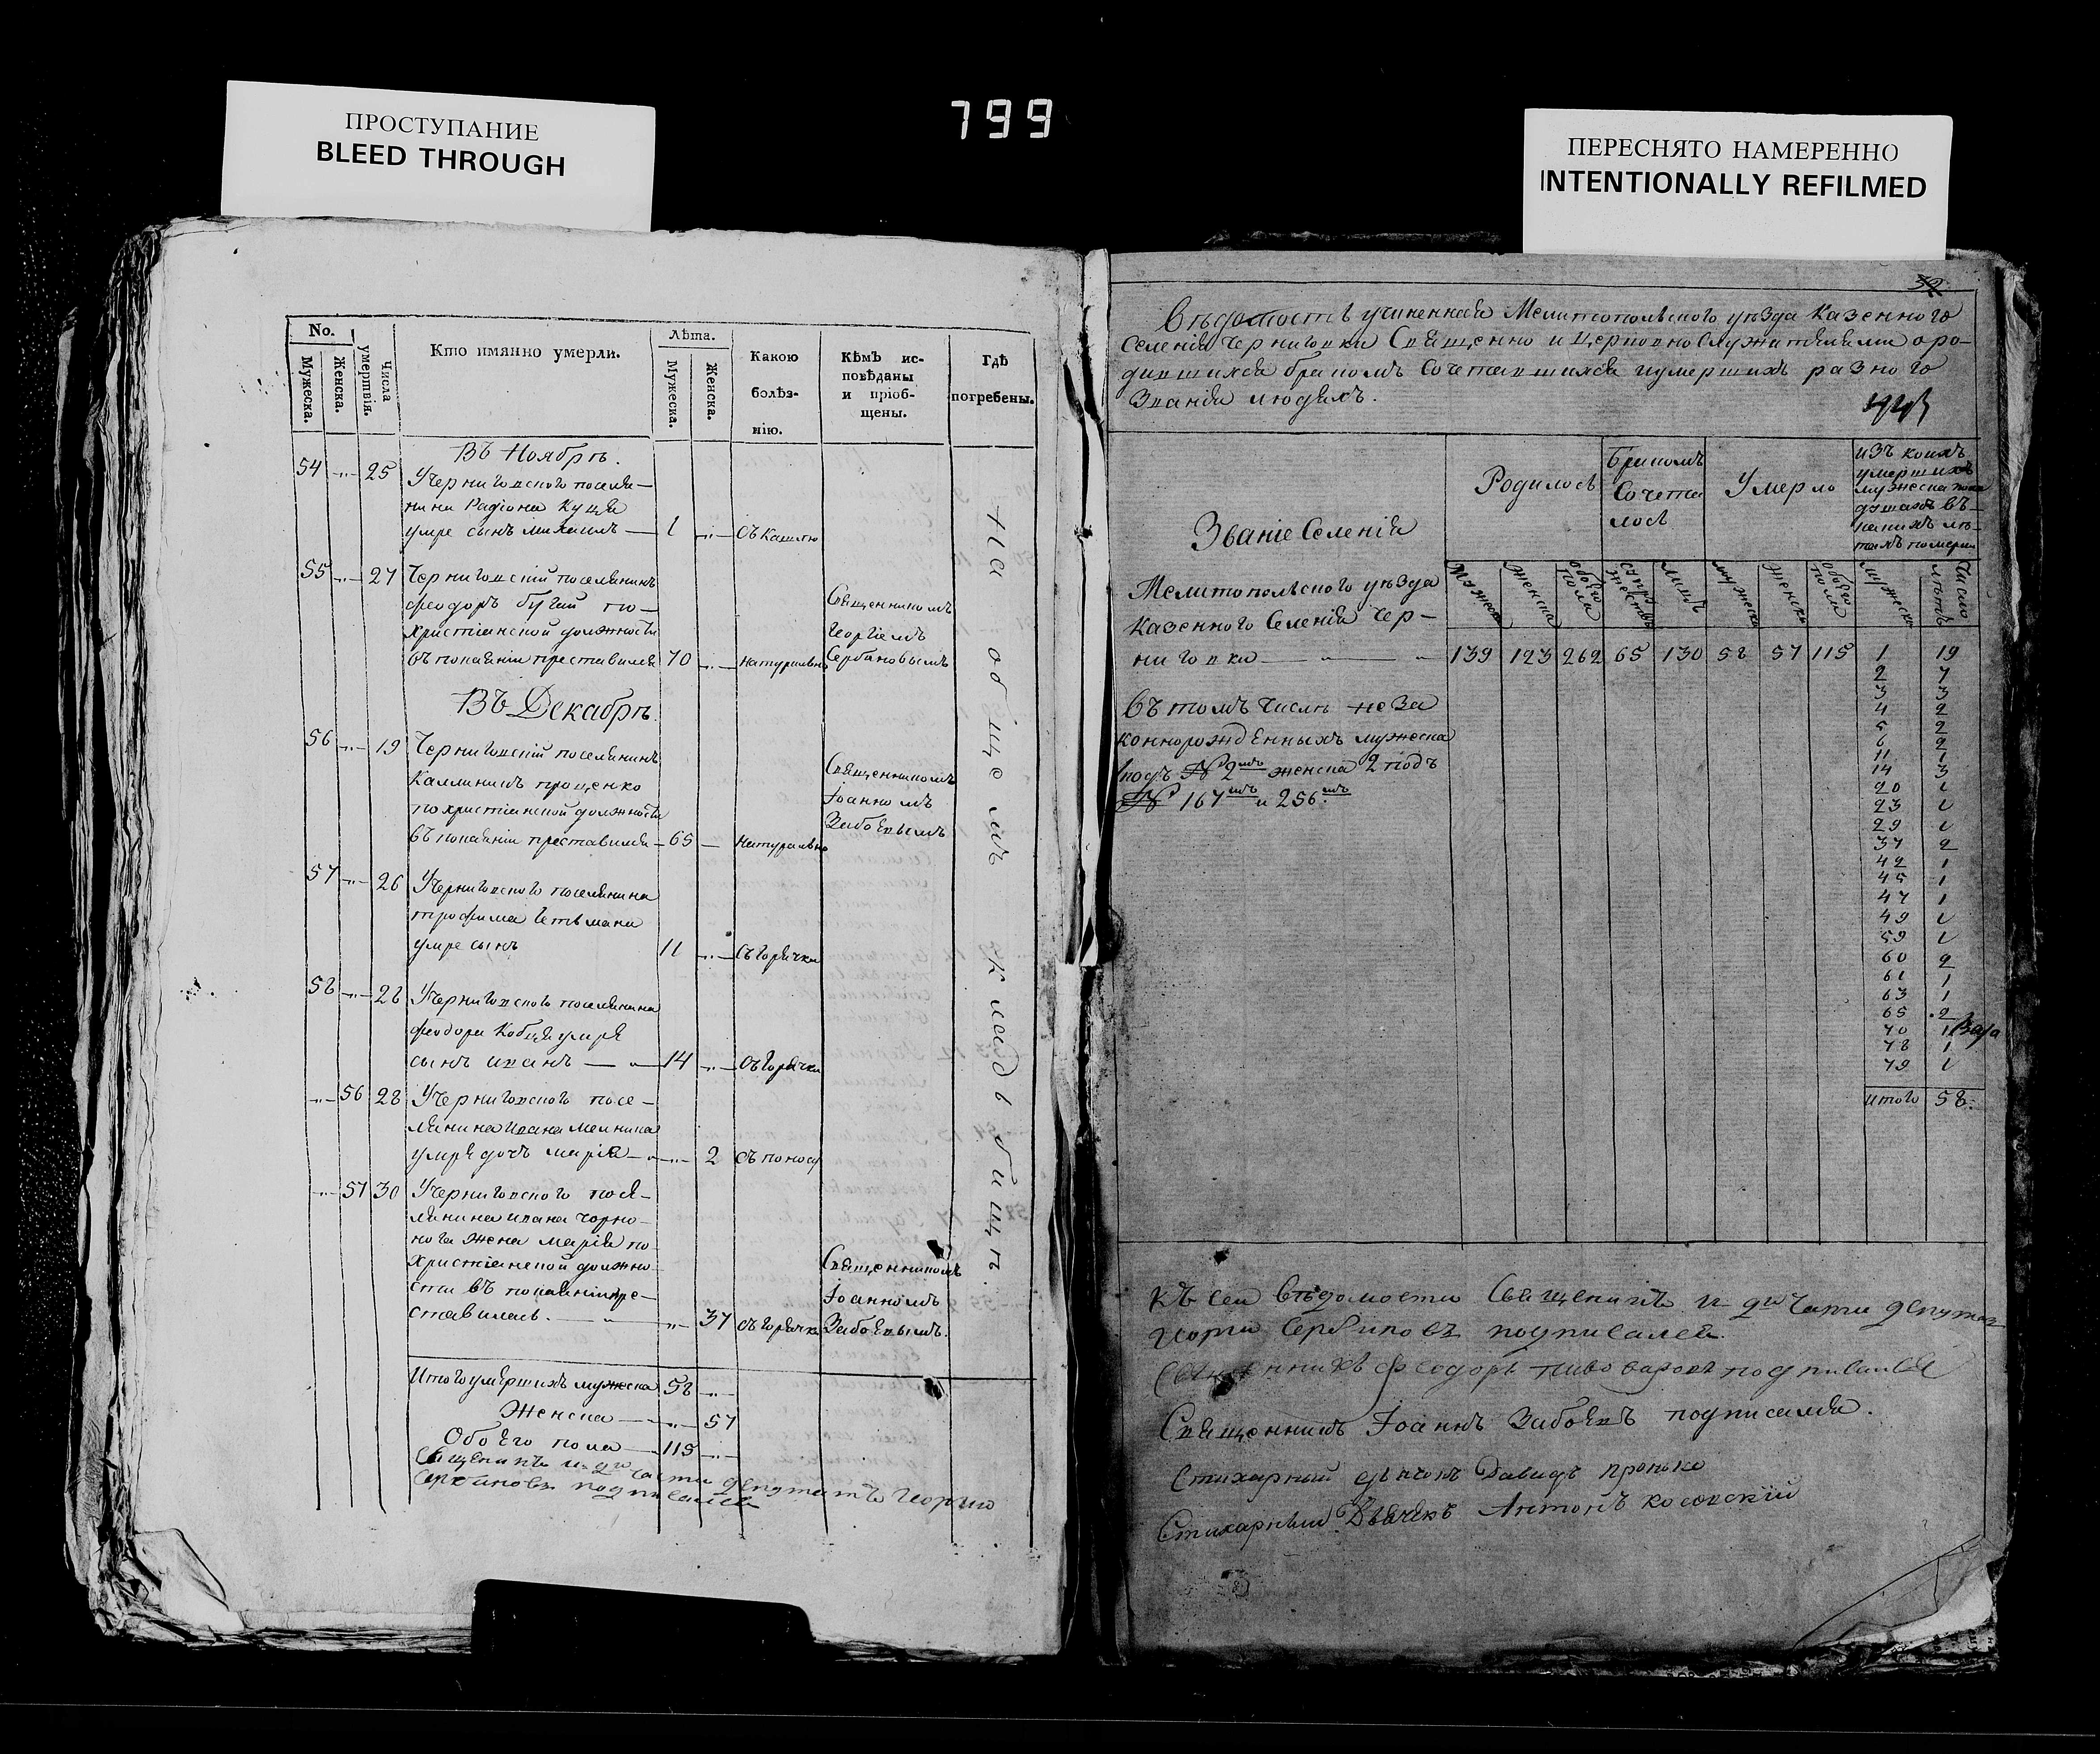 ПРОСТУПАНИЕ
BLEED THROUGH
799
ПЕРЕСНЯТО НАМЕРЕННО
INTENTIONALLY REFILMED
No.
Мужеска.
Женска.
Числа умертвія.
Кто имянно умерли.
Лѣта.
Мужеска.
Женска.
Какою болѣз-нію.
Кѣмъ ис-
повѣданы
и пріоб-
щены.
Гдѣ
погребены.
Въ Ноябрѣ.
54 25 Учерниговского поселя-
нина Радіона Куця
умре сынъ михаилъ 1 Отъ кашлю
55 27 Черниговскій поселянинъ
феодоръ бугай по-
христіанской должности
въ покаяніи преставился 70 натурально
Священникомъ
Георгіемъ
Сербиновымъ
Въ Декабрѣ.
56 19 Черниговскій поселянинъ
Каллиникъ проценко
похристіанской должности
въ покаяніи преставился 65 натурально
Священникомъ
Іоанномъ
Забоевымъ
57 26 Учерниговского поселянина
трофима гетьмана
умре сынъ 11 съ горячки
58 28 Учерниговского поселянина
феодора Кобця умре
сынъ иванъ 14 отъ горячки
56 28 Учерниговского посе-
лянина ивана мелника
умре дочь марія 2 съ поносу
57 30 Учерниговского посе-
лянина ивана чорно-
нога жена марія по
христіанской должно
сти въ покаяніи пре-
ставилась. 37 съ горячки
Священникомъ
Іоанномъ
Забоевымъ.
на общемъ кладбищѣ.
Итого умершихъ мужеска 58
Женска 57
Обоего пола 115
Священникъ и до части депутатъ Георгій
Сербиновъ подписался
32
Вѣдомость учиненная Мелитопольского уѣзда казенного
селенія Черниговки Священно и Церковно Служителями оро-
дившихся бракомъ Сочетавшихся иумершихъ разного
Званія людяхъ.
Званіе Селенія
Родилось
Бракомъ
Сочета
лось
Умерло
изъ коихъ
умершихъ
мужеска пола
душахъ въ
какихъ лѣ-
тахъ померли
Мужеска
женска
обоего пола
супружествъ
лицъ
мужеска
женска
обоего пола
мужеска
число лѣтъ
Мелитопольского уѣзда
казенного Селенія Чер-
ниговки 139 123 262 65 130 58 57 115
въ томъ числѣ неза
коннорожденныхъ мужеска
подъ № 2мъ женска 2 подъ
№ 167мъ и 256.мъ
1 19
2 7
3 3
4 2
5 2
6 2
11 1
14 3
20 1
23 1
29 1
37 2
42 1
45 1
47 1
49 1
59 1
60 2
61 1
63 1
65 2
70 1
78 1
79 1
итого 58.
Къ сей вѣдомости Священникъ и до части депутат
Георгій Сербиновъ подписался.
Священникъ Феодоръ пивоваровъ подписался
Священникъ Іоаннъ Забоевъ подписался.
Стихарный дьячокъ Давидъ пронько
Стихарный Дьячекъ Антонъ косовскій